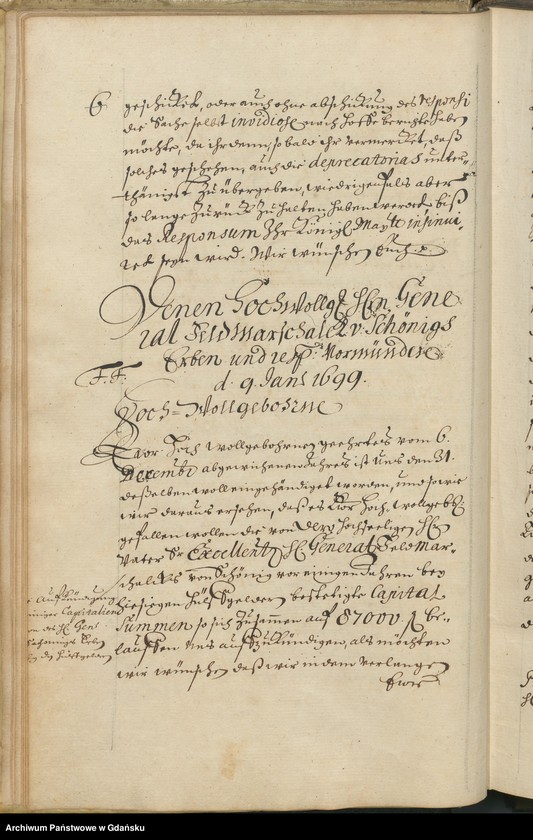 6
geschicket, oder auch ohne abschickung des responsi
die Sache selbst invidiose nach Hoffe berichtet haben
möchte, da ihr denn, so bald ihr vermercket, daß
solches geschehen, auch die deprecatorias unter-
thänigst zu übergeben, wiedrigenfals aber
so lange zurück zu halten haben werdet biß
das Responsum Ihr Königl. Mayt insinui-
ret seyn wird. Wir wünschen Euch
Denen HochWollgeb. HEn. Gene
ral FeldMarschalck v. Schönigs
Erben und resp. Vormünder
d. 9. Jan. 1699.
F. F.
Hoch-Wollgebohrne
Ewr Hoch Wollgebohrnen geehrtes vom 6.
Decembr abgewichenen Jahres ist uns den 31.
deßelben woll eingehändiget worden, und so wie
wir daraus ersehen, daß es Ewr Hoch Wollgeb.
gefallen wollen die von dero Hochseeligen HEn
Vater Sr Excellentz HE. General FeldMar-
schalck von Schönig vor einigen Jahren bey
hiesigen Hülffgeldern bestetigte Capital
Summen so sich zusammen auf 87000 be-
lauffen uns aufzukündigen, als möchten
wir wünschen daß wir in dem Verlangen
Ewr
Aufkündigung
einiger Capitalien
von des HE. Gen.
Schönings Erben
Archiwum Państwowe w Gdańsku